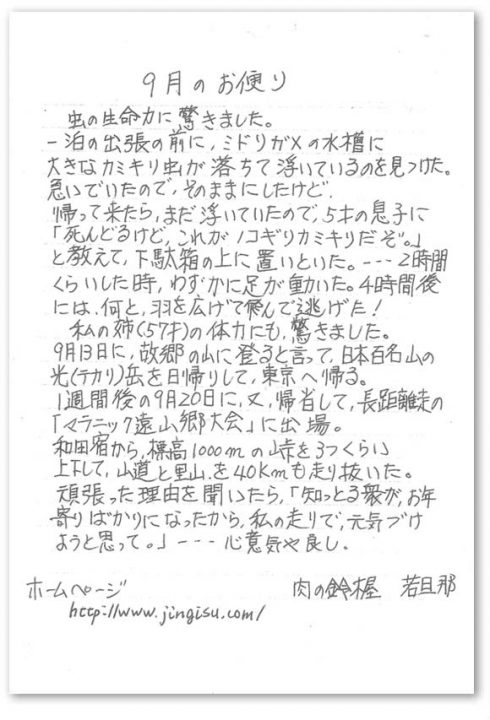 ９月のお便り
虫の生命力に驚きました。
一泊の出張の前に，ミドリガメの水槽に
大きなカミキリ虫が落ちて浮いているのを見つけた。
急いでいたので，そのままにしたけど，
帰って来たら，まだ浮いていたので，5才の息子に
「死んどるけど，これがノコギリカミキリだぞ。」
と教えて，下駄箱の上に置いといた。---2時間
くらいした時，わずかに足が動いた。4時間後
には，何と，羽を広げて飛んで逃げた！
私の姉(57才)の体力にも，驚きました。
9月13日に，故郷の山に登ると言って，日本百名山の
光(テカリ)岳を日帰りして，東京へ帰る。
1週間後の9月20日に，又，帰省して，長距離走の
「マラニック遠山郷大会」に出場。
和田宿から，標高1000mの峠を3つくらい
上下して，山道と里山を40Kmも走り抜いた。
頑張った理由を聞いたら，「知っとる衆が，お年
寄りばかりになったから，私の走りで，元気づけ
ようと思って。」---心意気や良し．
ホームページ 肉の鈴木屋 若旦那
http://www.jingisu.com/